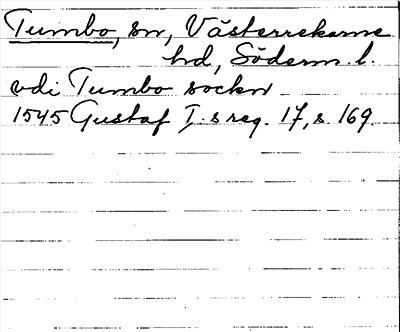 Tumbo, sn, Västerrekarne
hd, Söderm. l.
vdi Tumbo sockn
1545 Gustaf I:s reg. 17, s. 169.